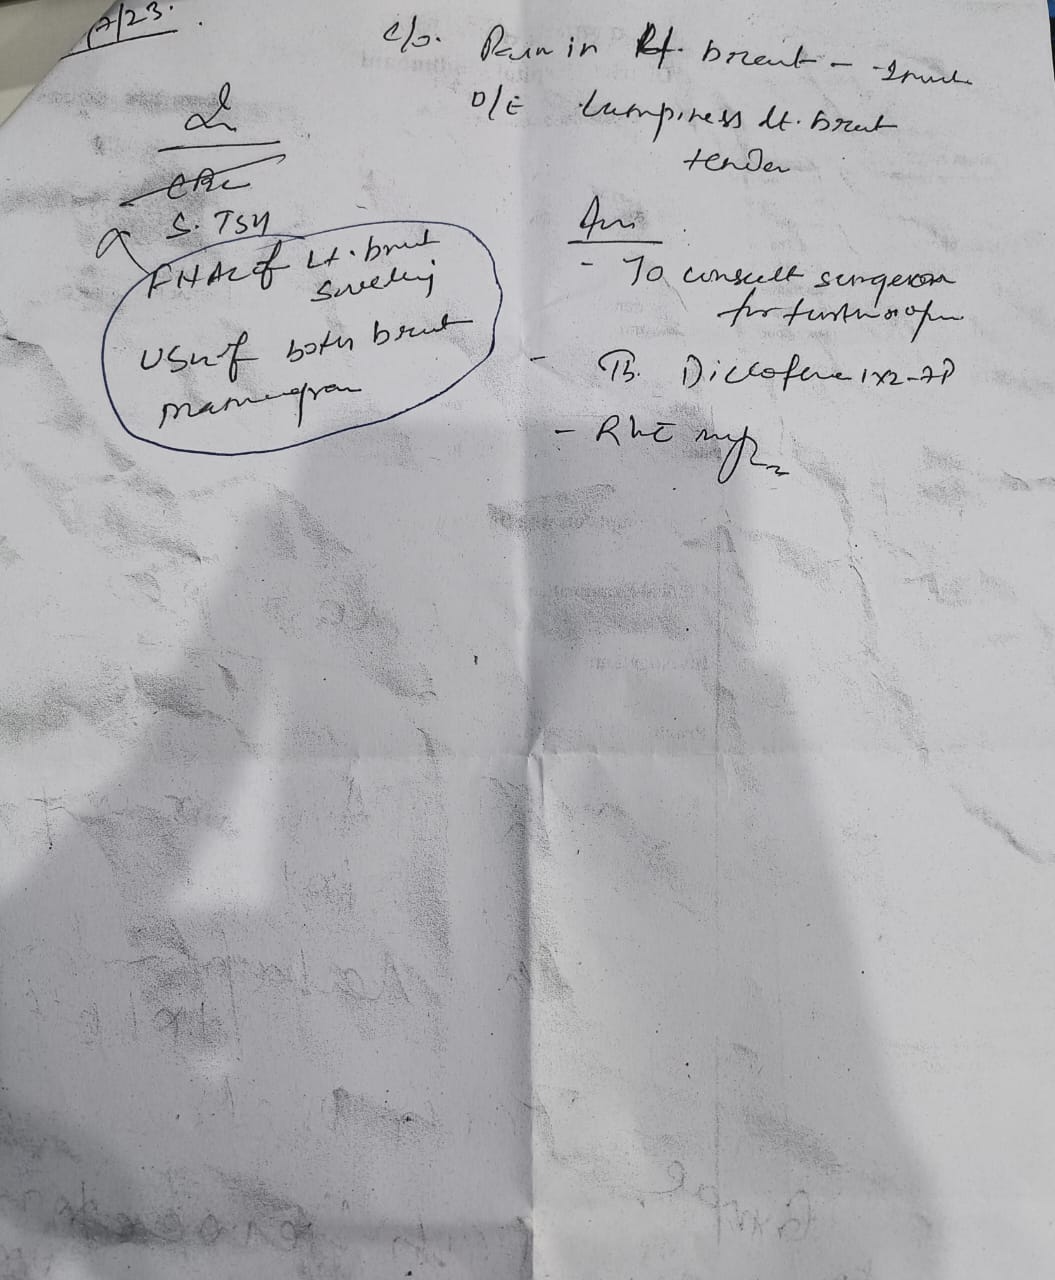 7/23.
c/o. Pain in Rt. breast - 1 month
O/E Lumpiness Lt. breast
tender
CBC
S. TSH
FNAC of Lt. breast
Swelling
USG of both breast
mammogram
Adv.
- To consult surgeon
for further
- Tb. Diclofenac 1x2-7D
- R/w